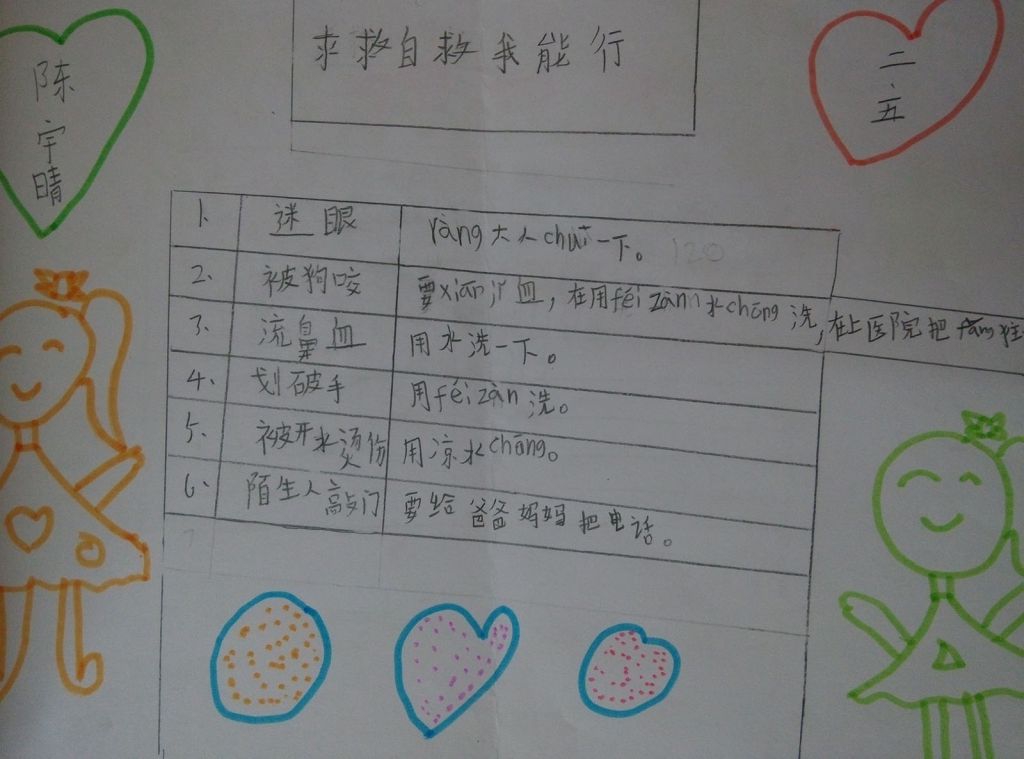 求救自救我能行
陈宇晴
二、五
1、 迷眼 ràng大人chuī一下。 120
2、 被狗咬 要xiān jǐ血，在用féi zàn水chōng洗，在上医院把
3、 流鼻血 用水洗一下。
4、 划破手 用féi zàn洗。
5、 被开水烫伤 用凉水chōng。
6、 陌生人敲门 要给爸爸妈妈把电话。
7